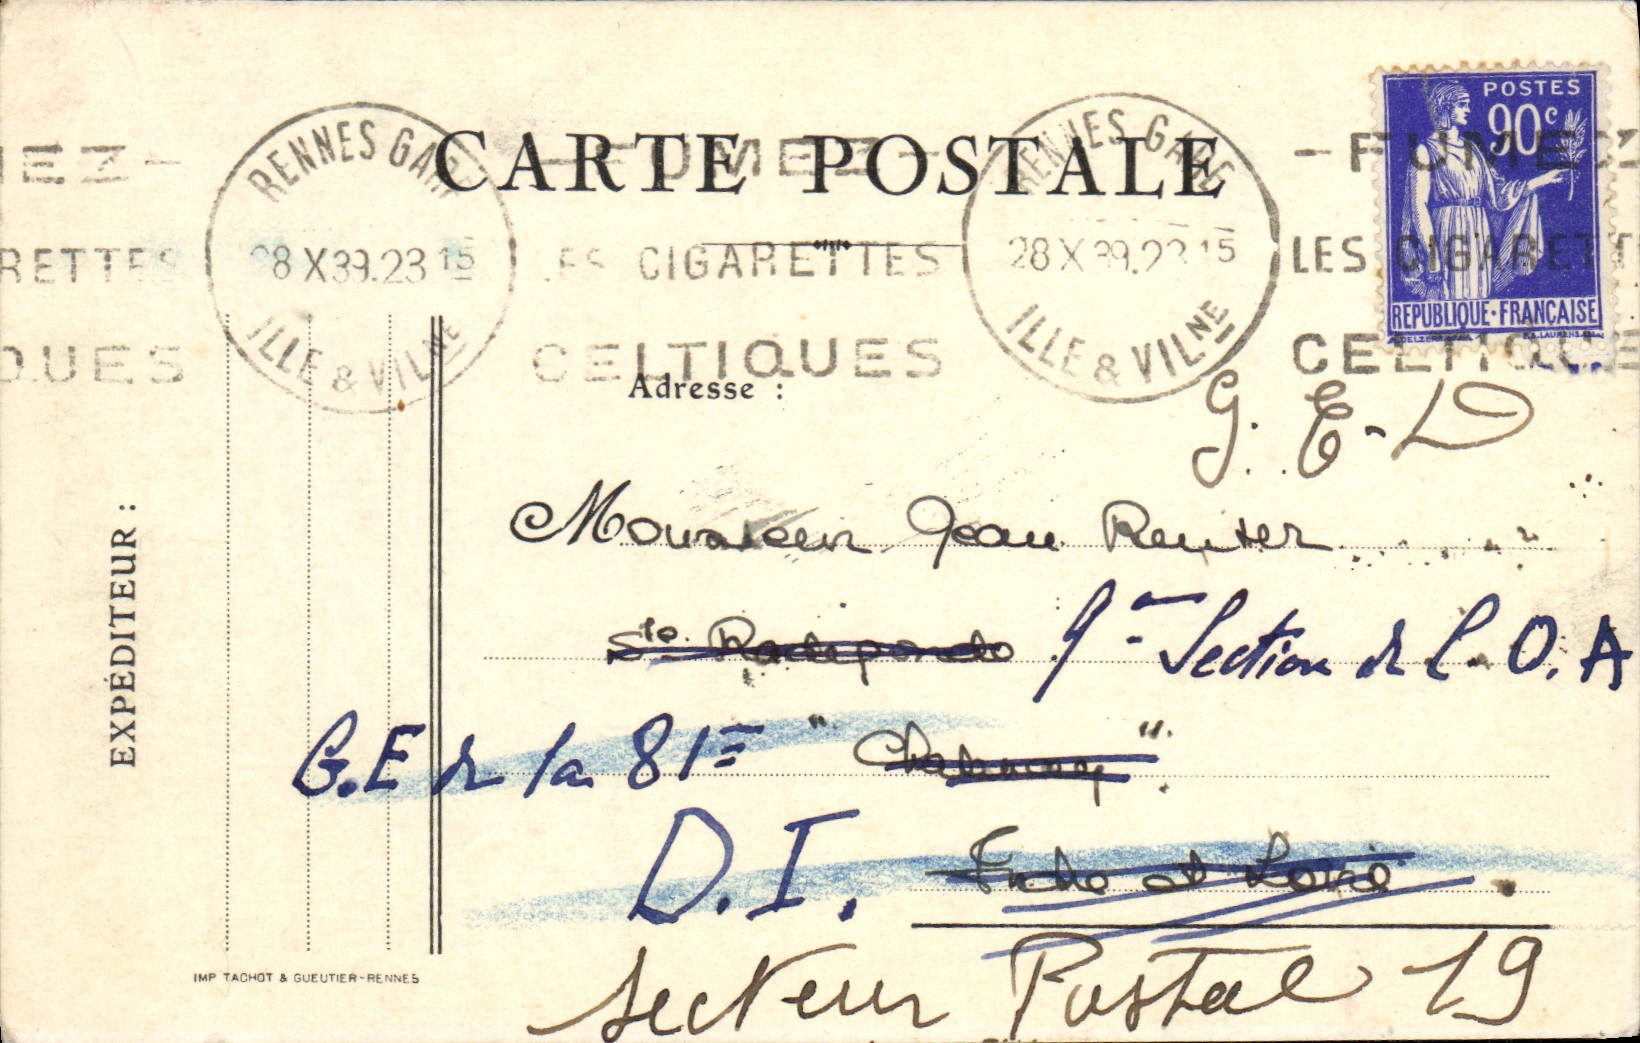 CARTE POSTALE
RENNES GARE
28 X 39. 23 15
ILLE & VILNE
FUMEZ -
LES CIGARETTES
CELTIQUES
RENNES GARE
28 X 39. 23 15
ILLE & VILNE
- FUMEZ
LES CIGARETT
CELTIQUE
EZ -
RETTES
QUES
POSTES
90c
REPUBLIQUE · FRANÇAISE
Adresse :
G. E - D
Monsieur Jean Reuter
Ste Radegonde
Section de C. O. A
G. E de la 81e
D. I.
Indre et Loire
Secteur Postal 19
EXPÉDITEUR :
IMP TACHOT & GUEUTIER-RENNES